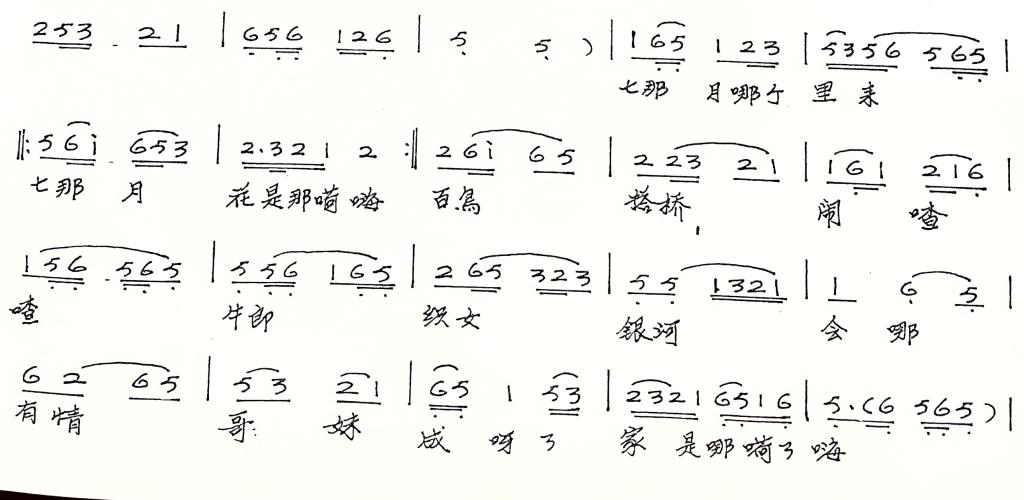 253 21 | 656 126 | 5 5 ) | 165 123 | 5356 565 |
七那 月哪个 里来
‖: 56i 653 | 2.321 2 :‖ 26i 65 | 223 21 | 161 216 |
七那 月 花是那嗬嗨 百鸟 搭桥, 闹 喳
156 565 | 556 165 | 265 323 | 55 1321 | 1 6 5 |
喳 牛郎 织女 银河 会 哪
62 65 | 53 21 | 65 1 53 | 2321 6516 | 5.(6 565) |
有情 哥 妹 成 呀了 家 是哪嗬了嗨